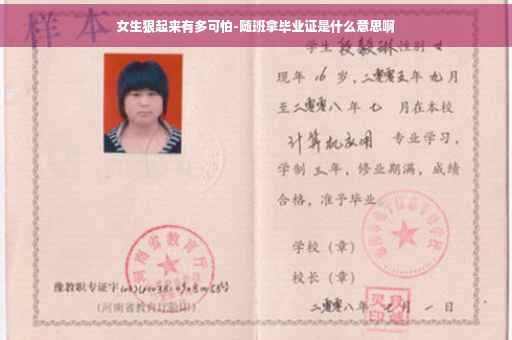 女生狠起来有多可怕-随班拿毕业证是什么意思啊
样本
学生段毅琳性别女
现年16岁，二零零五年九月
至二零零八年七月在本校
计算机应用专业学习，
学制三年，修业期满，成绩
合格，准予毕业
学校（章）
校长（章）
二零零八年七月一日
河南省教育厅
豫教职专证字
(河南省教育厅验印)